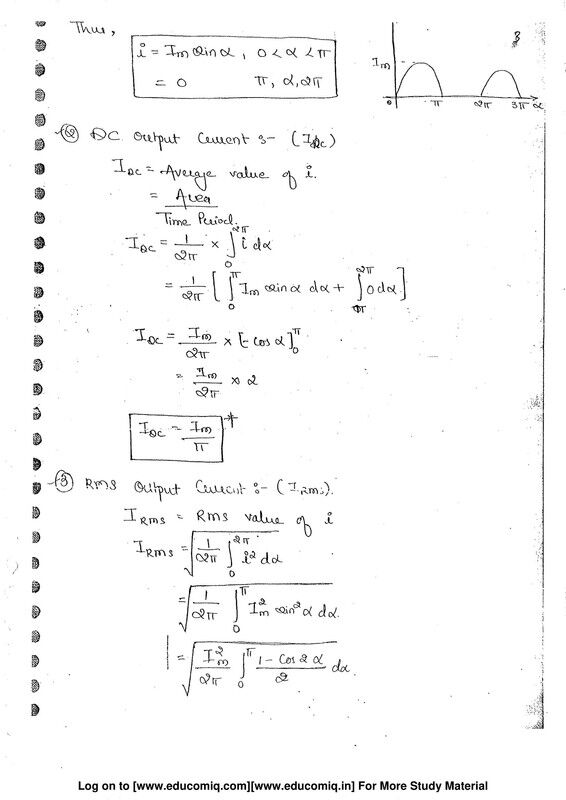 3
Thus,
i = Im sin α, 0 < α < π
= 0 π, α, 2π
Im
0 π 2π 3π α
(2) DC Output Current :- (IDC)
IDC = Average value of i.
= Area / Time Period.
IDC = 1/2π × ∫₀^2π i dα
= 1/2π [ ∫₀^π Im sin α dα + ∫π^2π 0 dα ]
IDC = Im/2π × [- cos α]₀^π
= Im/2π × 2
IDC = Im/π *
(3) RMS Output Current :- (IRMS).
IRMS = RMS value of i
IRMS = √(1/2π ∫₀^2π i² dα)
= √(1/2π ∫₀^π Im² sin² α dα.)
= √(Im²/2π ∫₀^π (1 - Cos 2 α)/2 dα)
Log on to [www.educomiq.com][www.educomiq.in] For More Study Material